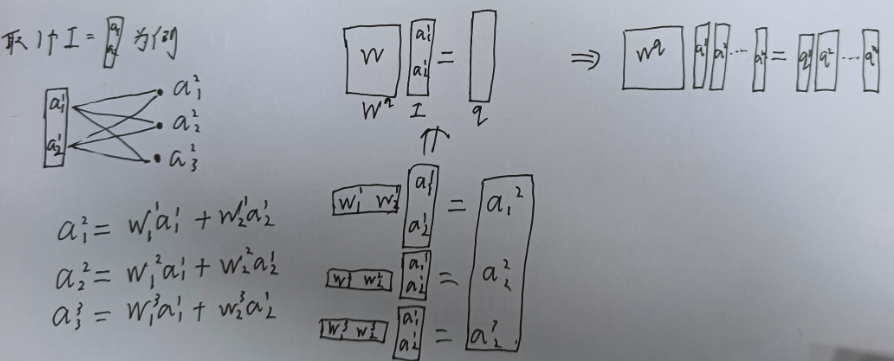 取1个 I = [a₁ a₂] 为例
a₁¹
a₂¹
a₁²
a₂²
a₃²
a₁² = w₁¹a₁¹ + w₂¹a₂¹
a₂² = w₁²a₁¹ + w₂²a₂¹
a₃³ = w₁³a₁¹ + w₂³a₂¹
W a₁¹ a₂¹ =
W^q I q
⇑
w₁¹ w₂¹ a₁¹ a₂¹ = a₁²
w₂² a₁¹ a₂¹ =
w₁³ w₂³ a₁¹ a₂¹ =
⇒ W^q a¹ a² ⋯ = q¹ q² ⋯